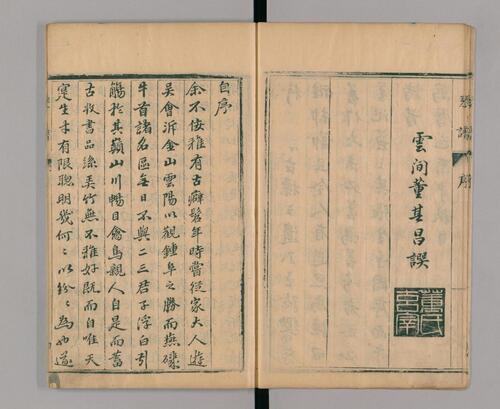 雲間董其昌譔
董氏玄宰
自序
余不佞雅有古癖髫年時嘗從家大人遊
吳會泝金山雲陽以觀鍾阜之勝而燕磯
牛首諸名區無日不與二三君子浮白引
觴於其巔山川暢目禽鳥親人自是而蓄
古收書品絲弄竹無不雅好既而自唯天
寔生才有限聰明幾何〻以紛〻為也遂